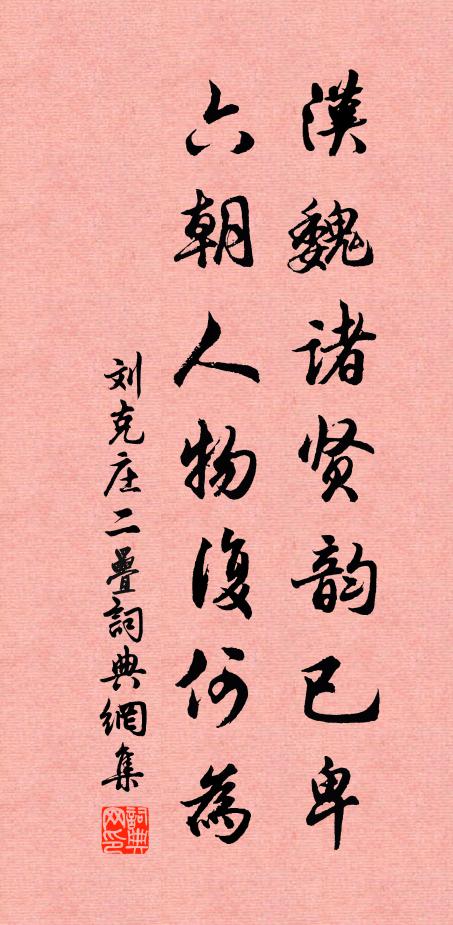 漢魏诸贤韵已卑
六朝人物復何為
刘克庄二疊詞典網集
詞典网印